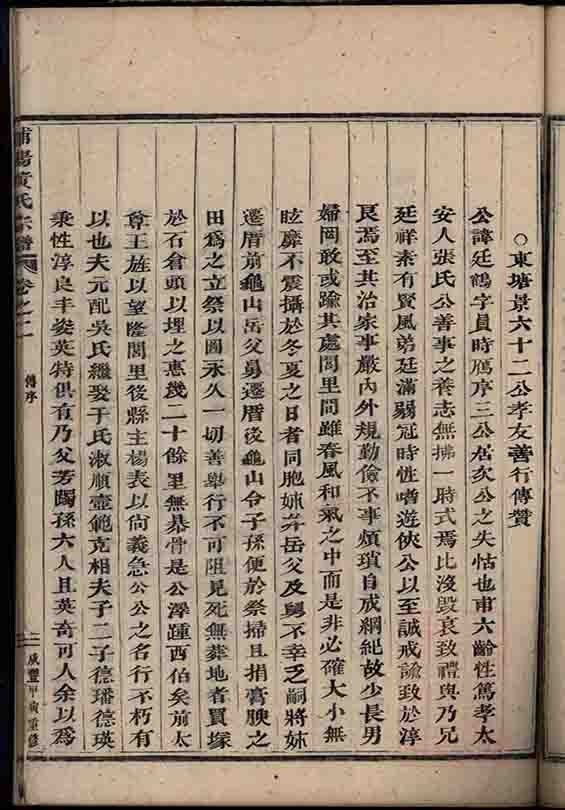 ○東塘景六十二公孝友善行傳贊
公諱廷鶴字員時鴈序三公居次公之失怙也甫六齡性篤孝太
安人張氏公善事之養志無拂一時式焉比沒毀哀致禮與乃兄
廷祥素有賢風弟廷滿弱冠時性嗜遊俠公以至誠戒諭致於淳
良焉至其治家事嚴內外規勤儉不事煩瑣自成綱紀故少長男
婦罔敢或踰其處閭里間雖春風和氣之中而是非必確大小無
眩靡不震攝於冬夏之日者同胞姊并岳父及舅不幸乏嗣將姊
遷厝前龜山岳父舅遷厝後龜山令子孫便於祭掃且捐膏腴之
田為之立祭以圖永久一切善舉行不可阻見死無葬地者買塚
於石倉頭以埋之惠幾二十餘里無暴骨是公澤踵西伯矣前太
尊王旌以望隆閭里後縣主楊表以尚義急公公之名行不朽有
以也夫元配吳氏繼娶于氏淑順壼範克相夫子二子德璠德瑛
秉性淳良丰姿英特俱有乃父芳躅孫六人且英奇可人余以為
浦陽黃氏宗譜
卷之二
傳序
二
咸豐甲寅重修